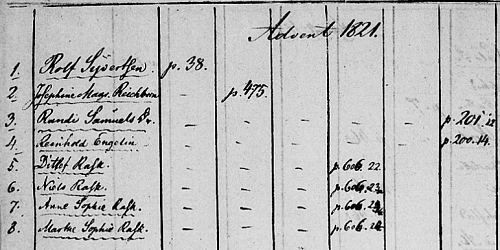 Advent 1821.
1. Rolf Syvertsen. p. 38.
2 Josephine Mags. p. 475.
3. Rande Samuels Dr. p. 201.
4. Reinhold Engelin p. 200. 14.
5. Ditlef Rask. p. 606. 22.
6. Niels Rask. p. 606.
7. Anne Sophie Rask. p. 606.
8. Marthe Sophie Rask. p. 606.